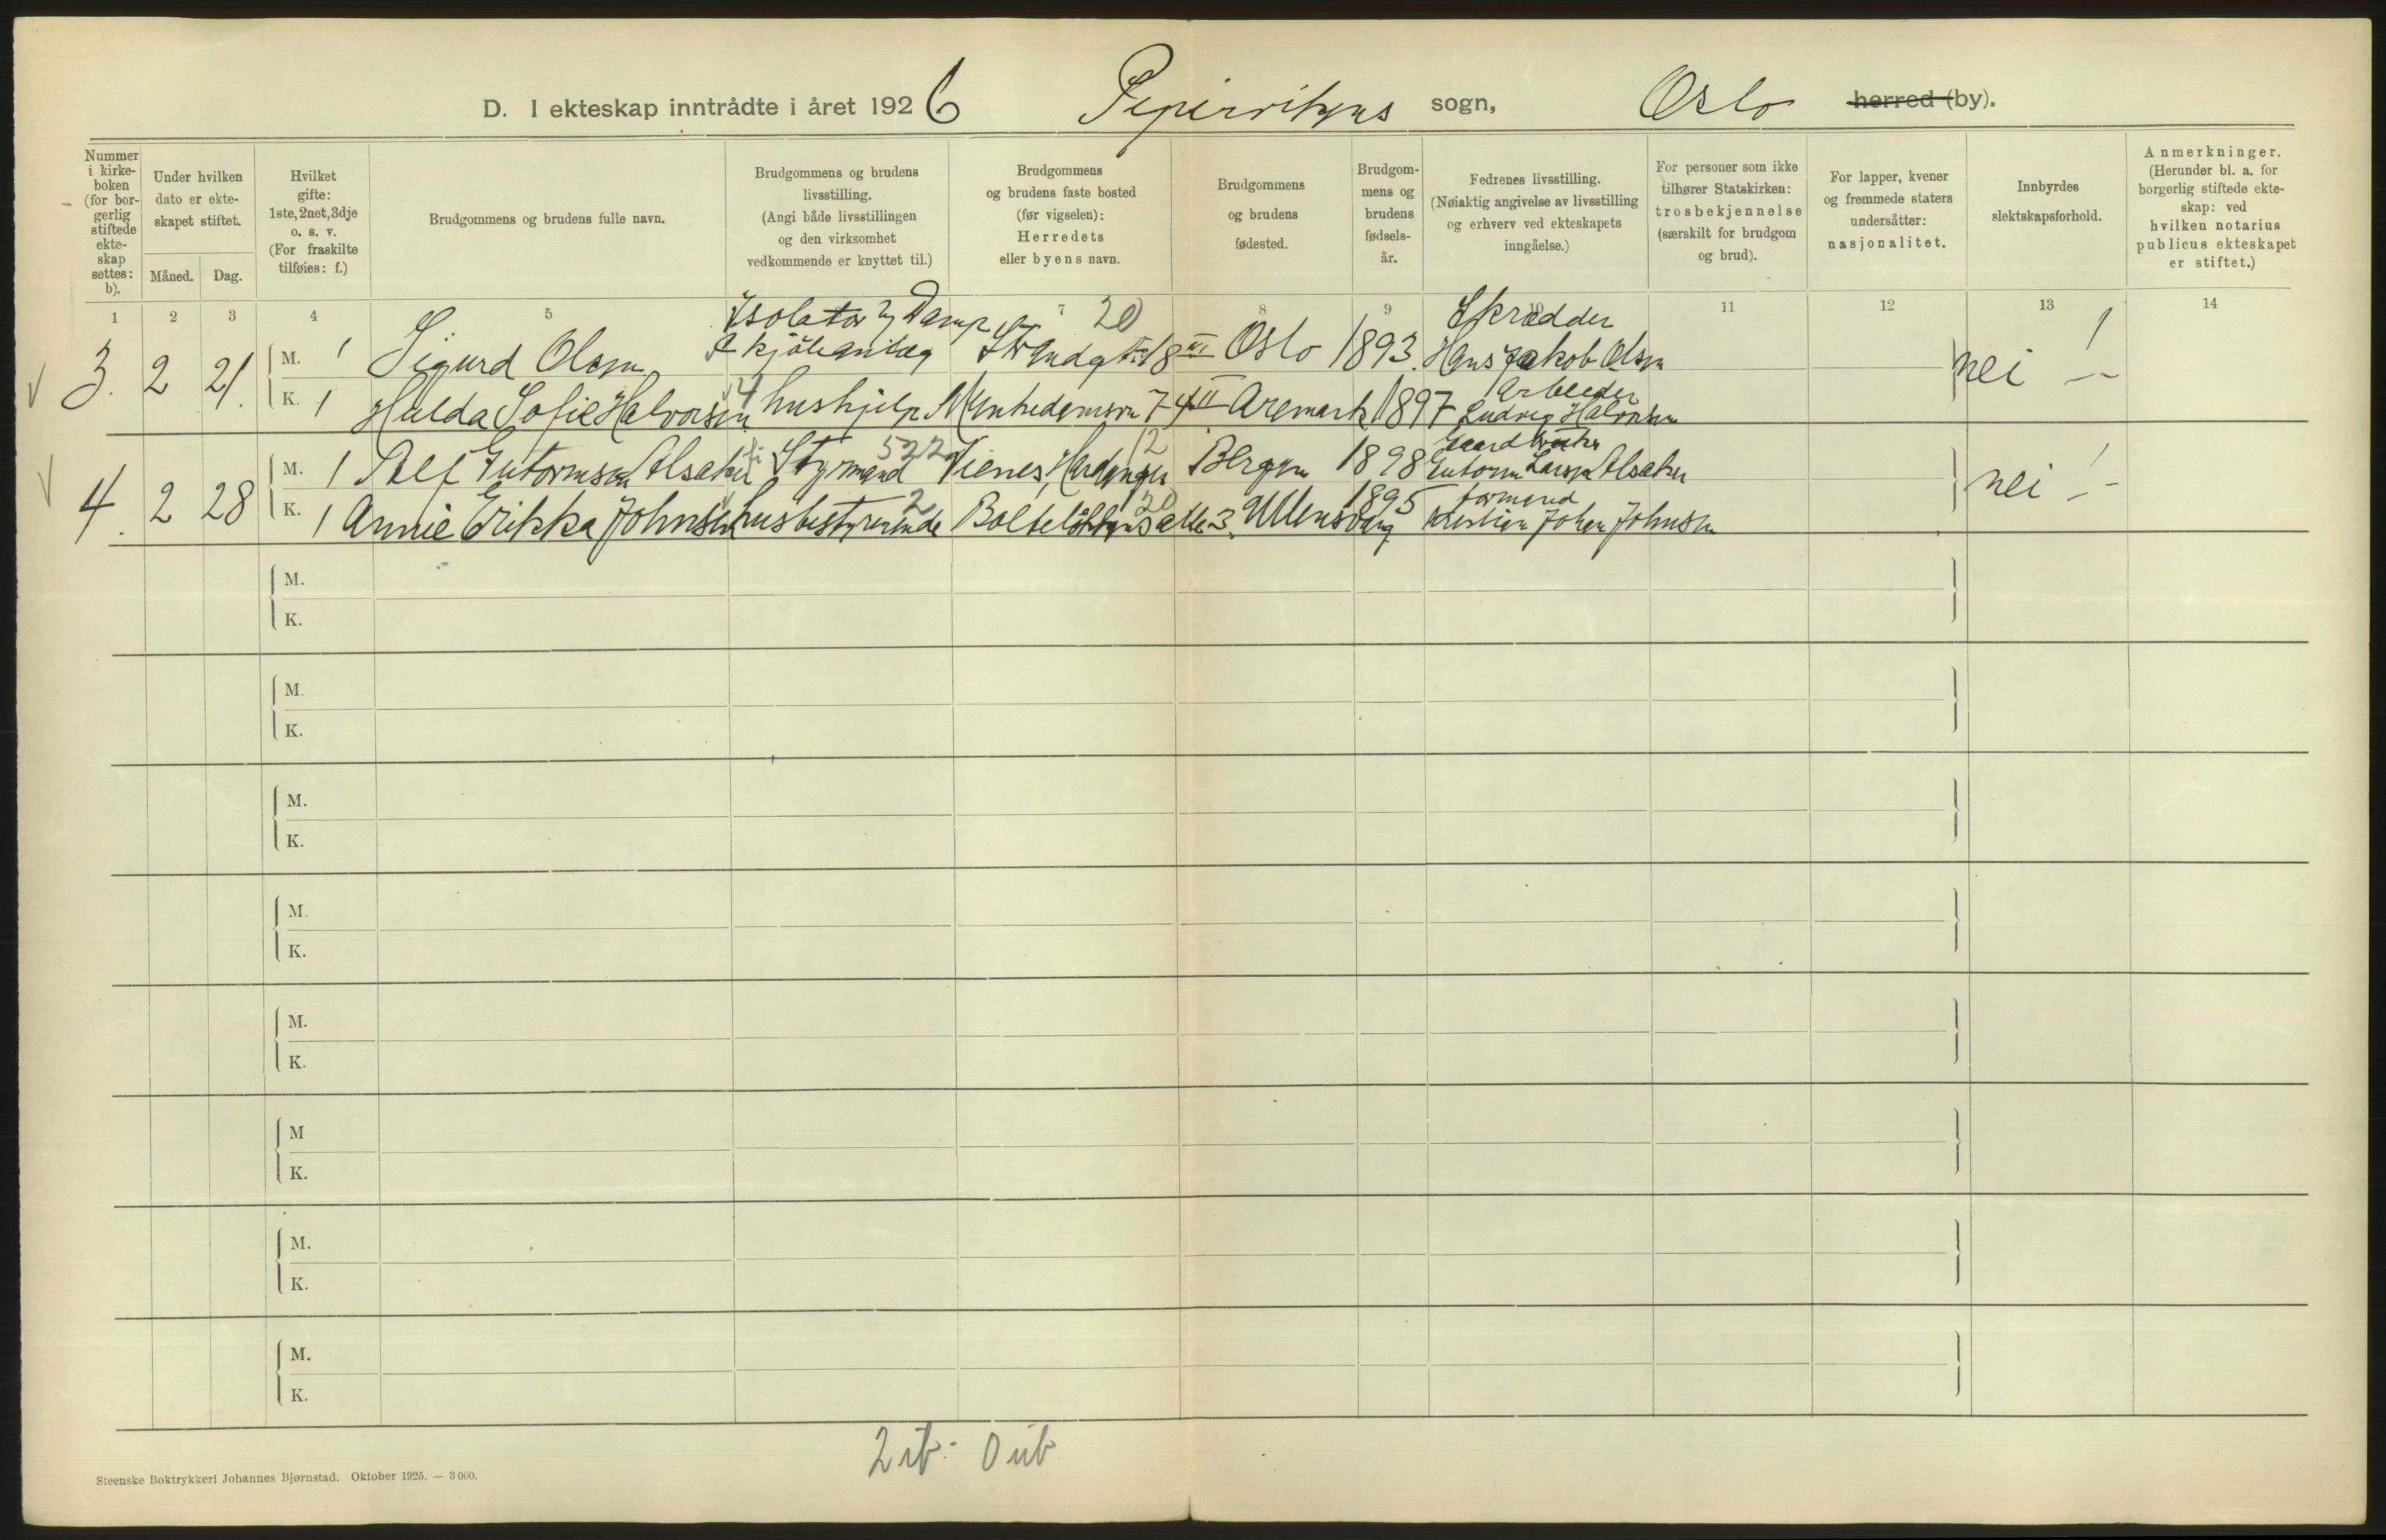 D. I ekteskap inntrådte i året 1926 Pipervikens sogn, Oslo herred (by).
Nummer i kirke-boken (for bor-gerlig stiftede ekte-skap settes: b).
Under hvilken dato er ekte-skapet stiftet.
Måned. Dag.
Hvilket gifte: 1ste, 2net, 3dje o. s. v. (For fraskilte tilføies: f.)
Brudgommens og brudens fulle navn.
Brudgommens og brudens livsstilling. (Angi både livsstillingen og den virksomhet vedkommende er knyttet til.)
Brudgommens og brudens faste bosted (før vigselen): Herredets eller byens navn.
Brudgommens og brudens fødested.
Brudgom-mens og brudens fødsels-år.
Fedrenes livsstilling. (Nøiaktig angivelse av livsstilling og erhverv ved ekteskapets inngåelse.)
For personer som ikke tilhører Statskirken: trosbekjennelse (særskilt for brudgom og brud).
For lapper, kvener og fremmede staters undersåtter: nasjonalitet.
Innbyrdes slektskapsforhold.
Anmerkninger. (Herunder bl. a. for borgerlig stiftede ekte-skap: ved hvilken notarius publicus ekteskapet er stiftet.)
1 2 3 4 5 7 8 9 11 12 13 14
Isolatør Damp 20 Skrædder
3. 2 21. M. 1 Sigurd Olsen kjøleanlæg Strandgt 18 III Oslo 1893. Hans Jakob Olsen nei
Arbeider
K. 1 Hulda Sofie Halvorsen 4 hushjelp Munkedamsvn 74 II Aremark 1897 Ludvig Halvorsen
522 12 Gaardbruker
4. 2 28 M. 1 Alf Gutormsen Alsaker Styrmand Vienes, Hardanger Bergen 1898 Gutorm Larsen Alsaker nei
2 20 1895 formand
K. 1 Annie Erikka Johnsen husbestyrerinde Bolteløkkens alle 3. Ullensvang Kristian Johan Johnsen
M.
K.
M.
K.
M.
K.
M.
K.
M.
K.
M
K.
M.
K.
M.
K.
2 ib. 0 ub
Steenske Boktrykkeri Johannes Bjørnstad. Oktober 1925. — 3 000.